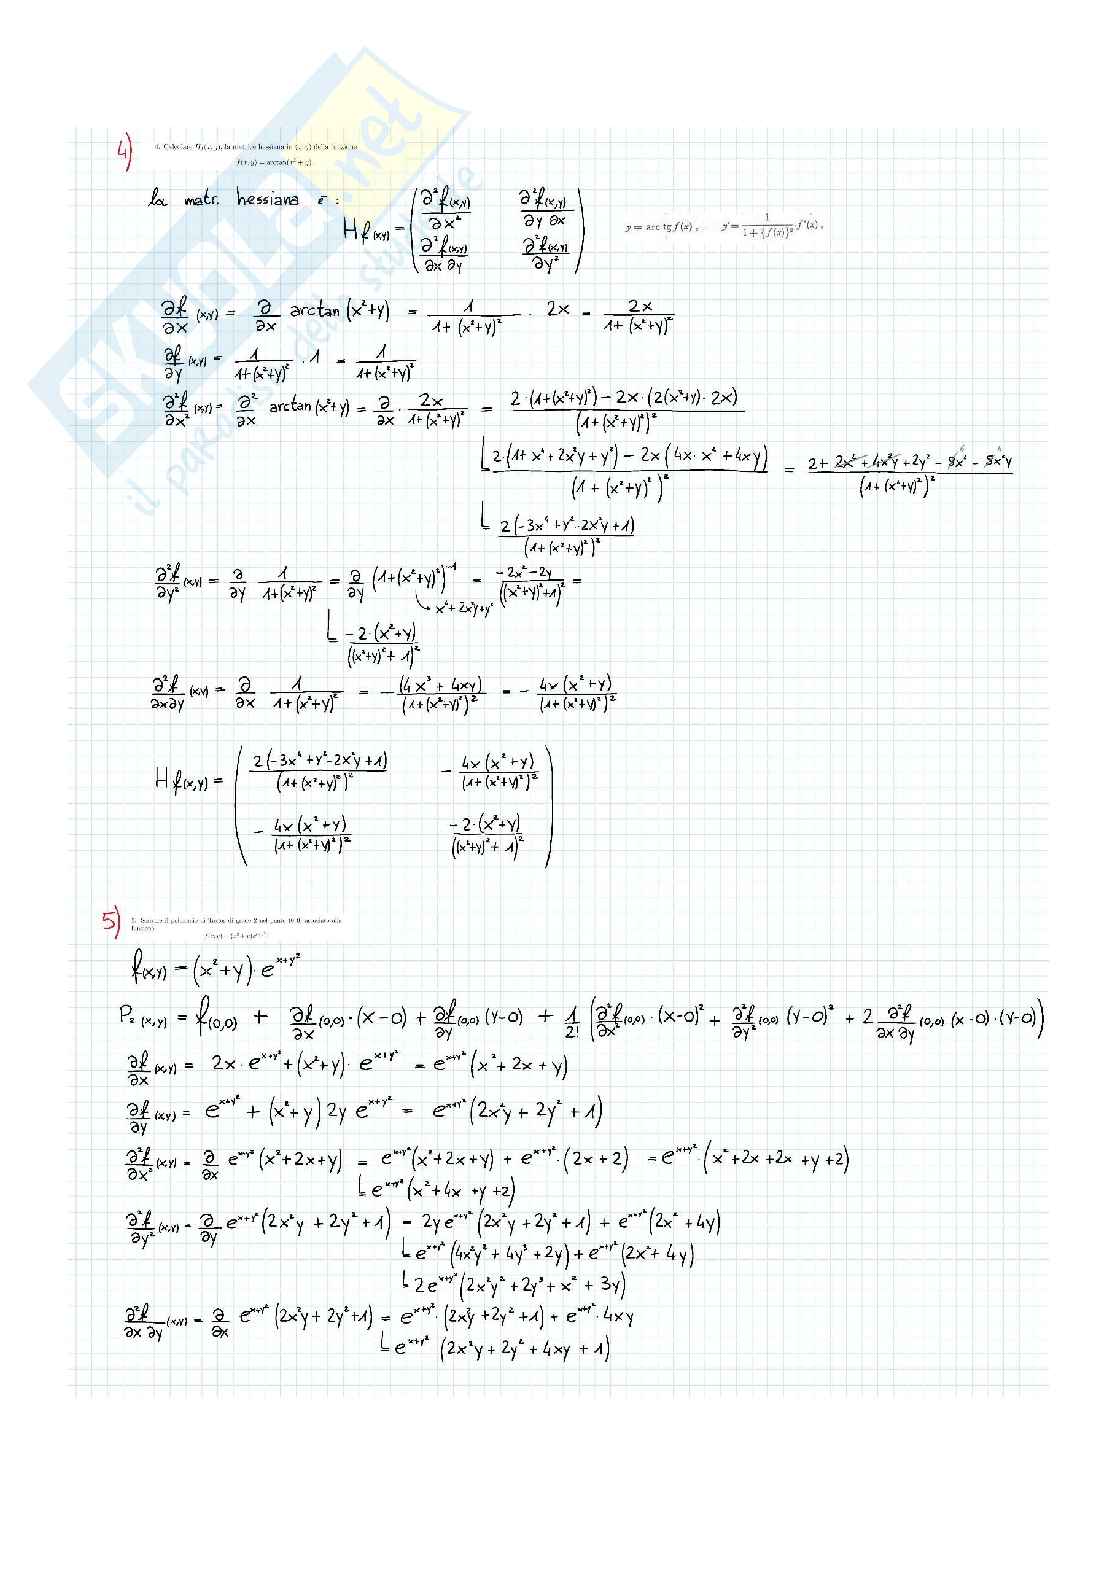 SKUOLA.net
il paradiso dello studente
4)
4. Calcolare Hf(x, y), la matrice hessiana in (x, y) della funzione
f(x, y) = arctan(x² + y)
la matr. hessiana è :
Hf(x,y) = ( ∂²f(x,y)/∂x² ∂²f(x,y)/∂y ∂x
∂²f(x,y)/∂x ∂y ∂²f(x,y)/∂y² )
y = arc tg f(x) , y' = 1/(1 + [f(x)]²) f'(x) ,
∂f/∂x (x,y) = ∂/∂x arctan (x²+y) = 1/(1+(x²+y)²) · 2x = 2x/(1+(x²+y)²)
∂f/∂y (x,y) = 1/(1+(x²+y)²) · 1 = 1/(1+(x²+y)²)
∂²f/∂x² (x,y) = ∂²/∂x arctan (x²+y) = ∂/∂x · 2x/(1+(x²+y)²) = (2·(1+(x²+y)²) − 2x·(2(x²+y)·2x))/(1+(x²+y)²)²
(2·(1+x⁴+2x²y+y²) − 2x(4x·x²+4xy))/(1+(x²+y)²)² = (2+2x⁴+4x²y+2y²−8x⁴−8x²y)/(1+(x²+y)²)²
2(−3x⁴+y²-2x²y+1)/(1+(x²+y)²)²
∂²f/∂y² (x,y) = ∂/∂y 1/(1+(x²+y)²) = ∂/∂y (1+(x²+y)²)⁻¹ = (−2x²−2y)/((x²+y)²+1)² =
x⁴+2x²y+y²
−2·(x²+y)/((x²+y)²+1)²
∂²f/∂x∂y (x,y) = ∂/∂x 1/(1+(x²+y)²) = −(4x³+4xy)/(1+(x²+y)²)² = − 4x(x²+y)/(1+(x²+y)²)²
Hf(x,y) = ( 2(−3x⁴+y²−2x²y+1)/(1+(x²+y)²)² − 4x(x²+y)/(1+(x²+y)²)²
− 4x(x²+y)/(1+(x²+y)²)² −2·(x²+y)/((x²+y)²+1)² )
5)
5. Scrivere il polinomio di Taylor di grado 2 nel punto (0,0) associato alla
funzione
f(x,y) = (x²+y)·e^(x+y²)
P₂ (x,y) = f(0,0) + ∂f/∂x (0,0)·(x−0) + ∂f/∂y (0,0) (y−0) + 1/2! (∂²f/∂x² (0,0)·(x−0)² + ∂²f/∂y² (0,0) (y−0)² + 2 ∂²f/∂x ∂y (0,0) (x−0)·(y−0))
∂f/∂x (x,y) = 2x·e^(x+y²) + (x²+y)·e^(x+y²) = e^(x+y²) (x²+2x+y)
∂f/∂y (x,y) = e^(x+y²) + (x²+y) 2y e^(x+y²) = e^(x+y²) (2x²y+2y²+1)
∂²f/∂x² (x,y) = ∂/∂x e^(x+y²) (x²+2x+y) = e^(x+y²) (x²+2x+y) + e^(x+y²)·(2x+2) = e^(x+y²)·(x²+2x+2x+y+2)
e^(x+y²) (x²+4x+y+2)
∂²f/∂y² (x,y) = ∂/∂y e^(x+y²) (2x²y+2y²+1) = 2y e^(x+y²) (2x²y+2y²+1) + e^(x+y²) (2x²+4y)
e^(x+y²) (4x²y²+4y³+2y) + e^(x+y²) (2x²+4y)
2e^(x+y²) (2x²y²+2y³+x²+3y)
∂²f/∂x ∂y (x,y) = ∂/∂x e^(x+y²) (2x²y+2y²+1) = e^(x+y²)·(2x²y+2y²+1) + e^(x+y²)·4xy
e^(x+y²) (2x²y+2y²+4xy+1)